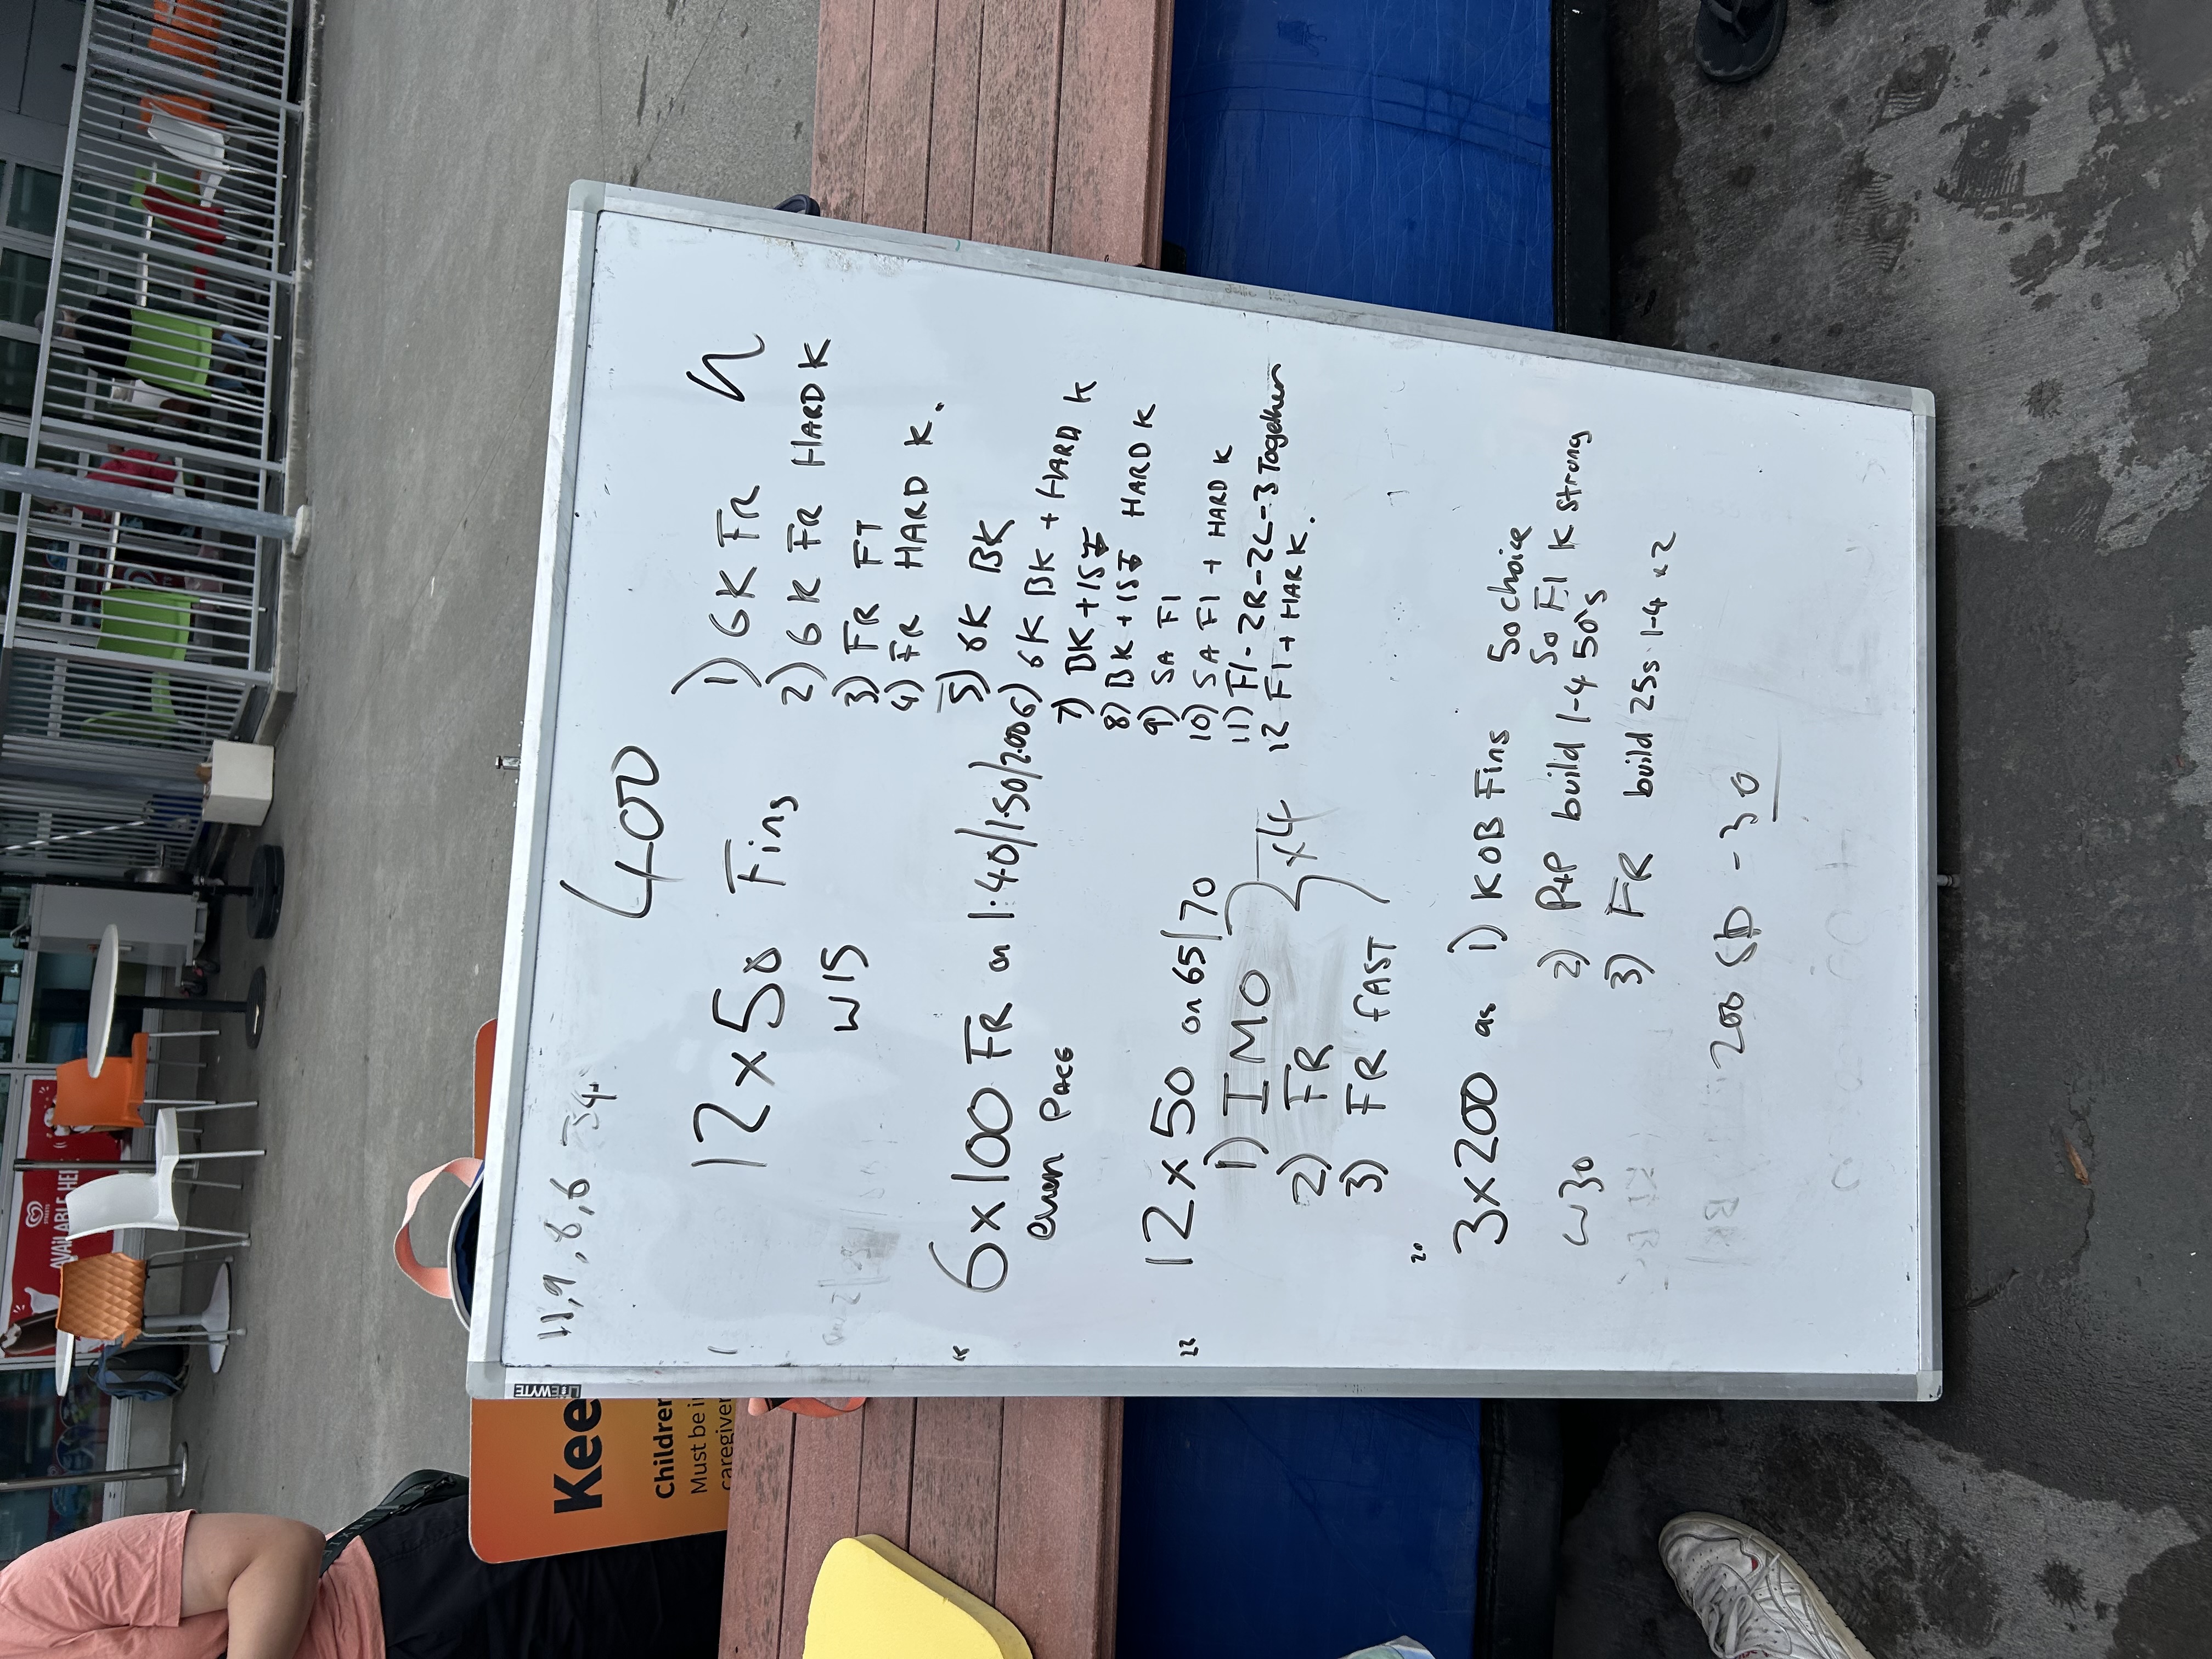 STREETS
AVAILABLE HE
LITEWYTE
Kee
Children
Must be i
caregiver
11, 9, 8, 6 34
400
12x50 Fins
W15
1) 6K FR
2) 6K FR HARD K
3) FR FT
4) FR HARD K.
5) 6K BK
6) 6K BK + HARD K
7) BK + 15
8) BK + 15 HARD K
9) SA F1
10) SA F1 + HARD K
11) F1 - 2R - 2L - 3 Together
12 F1 + HAR K.
6x100 FR on 1:40/1:50/2:00
even PACE
12 x 50 on 65/70
1) IMO
2) FR
3) FR FAST
x4
20
3x200 as 1) KOB Fins 50 choice
50 F1 K strong
W30
2) P+P build 1-4 50's
3) FR build 25s 1-4 x2
200 SD - 30